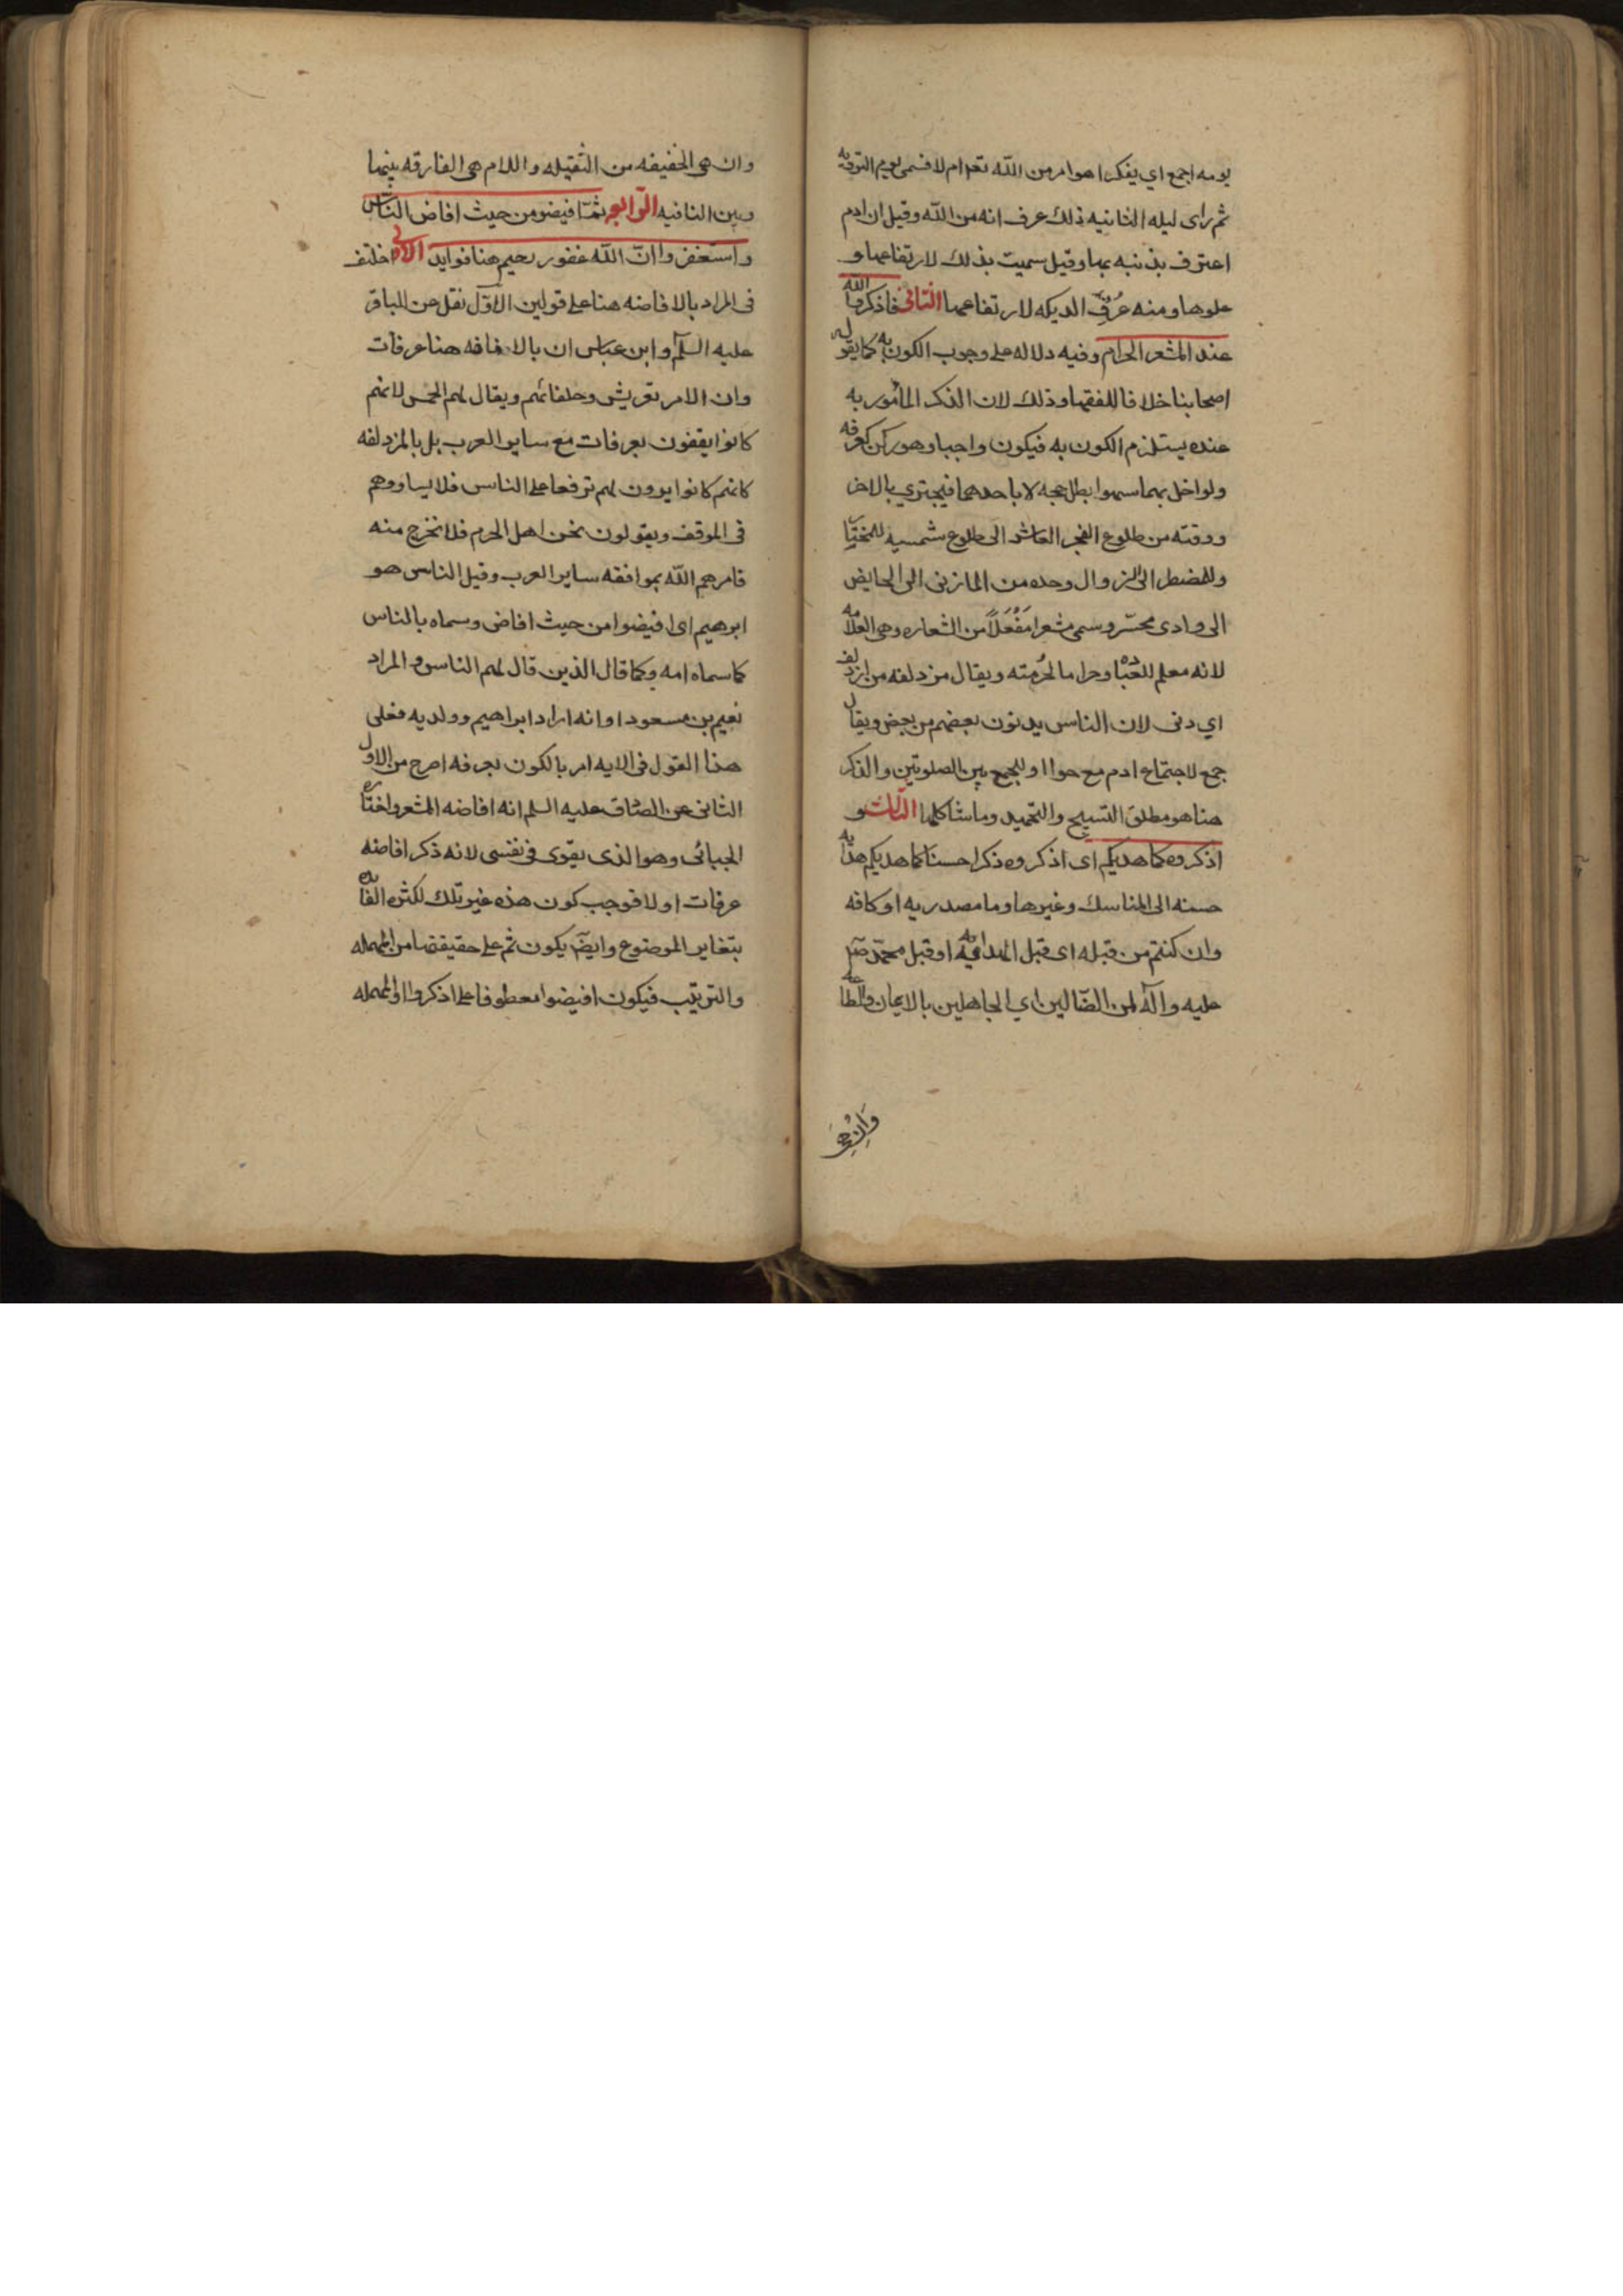 يومه اجمع اي يفكر اهو امر من الله تعو ام لا فسمى يوم الترويه
ثم راى ليله الثانيه ذلك عرف انه من الله وقيل ان ادم
اعترف بذنبه بها وقيل سميت بذلك لارتفاعها و
علوها ومنه عُرف الديكه لارتفاعها الثانى فاذكروا الله
عند المشعر الحرام وفيه دلاله على وجوب الكون به كما يقوله
اصحابنا خلافا للفقها وذلك لان الذكر المأمور به
عنده يستلزم الكون به فيكون واجبا وهو ركن كعرفه
ولو اخل بهما سهوا بطل حجه لا باحدهما فيجتزي بالاخر
ووقته من طلوع الفجر العاشر الى طلوع شمسه للمختار
وللمضطر الى الزوال وحده من المازنى الى الحايض
الى وادى محسّر وسمى مشعرا مَفْعَلاً من الشعاره وهى العلامه
لانه معلم للعباده وحراما لحُرمته ويقال مزدلفه من ازدلف
اي دنى لان الناس يدنون بعضهم من بعض ويقال
جمع لاجتماع ادم مع حوا او للجمع بين الصلوتين والذكر
هنا هو مطلق التسبيح والتحميد وما شاكلها الثالث و
اذكروه كما هديكم اى اذكروه ذكرا حسنا كما هديكم هدايه
حسنه الى المناسك وغيرها وما مصدريه او كافه
وان كنتم من قبله اى قبل الهدايه او قبل محمّد صلى
عليه وآله لمن الضّالين اي الجاهلين بالايمان والطاعه
وَاِنْ هِىَ
وان هى الخفيفه من الثقيله واللام هى الفارقه بينها
وبين النافيه الرابع ثمّ افيضو من حيث افاض النّاس
واستغفروا انّ الله غفور رحيم هنا فوايد الاولى اختلف
فى المراد بالافاضه هنا على قولين الاوّل نقل عن الباقر
عليه السلم وابن عباس ان بالافاضه هنا عرفات
وان الامر لقريش وحلفائهم ويقال لهم الحمس لانهم
كانوا يقفون بعرفات مع ساير العرب بل بالمزدلفه
كانهم كانوا يرون لهم ترفعا على الناس فلا يساووهم
فى الموقف ويقولون نحن اهل الحرم فلا نخرج منه
فامرهم الله بموافقه ساير العرب وقيل الناس هو
ابرهيم اى افيضوا من حيث افاض وسماه بالناس
كما سماه امه وكما قال الذين قال لهم الناس والمراد
نعيم بن مسعود او انه اراد ابراهيم وولديه فعلى
هذا القول فى الايه امر بالكون بعرفه اصرح من الاول
الثانى عن الصادق عليه السلم انه افاضه المشعر واختاره
الجبائى وهو الذى يقوى فى نفسى لانه ذكر افاضه
عرفات اولا فوجب كون هذه غير تلك لكثره الفائده
بتغاير الموضوع وايضا يكون ثم على حقيقتها من المهله
والترتيب فيكون افيضوا معطوفا على اذكروا